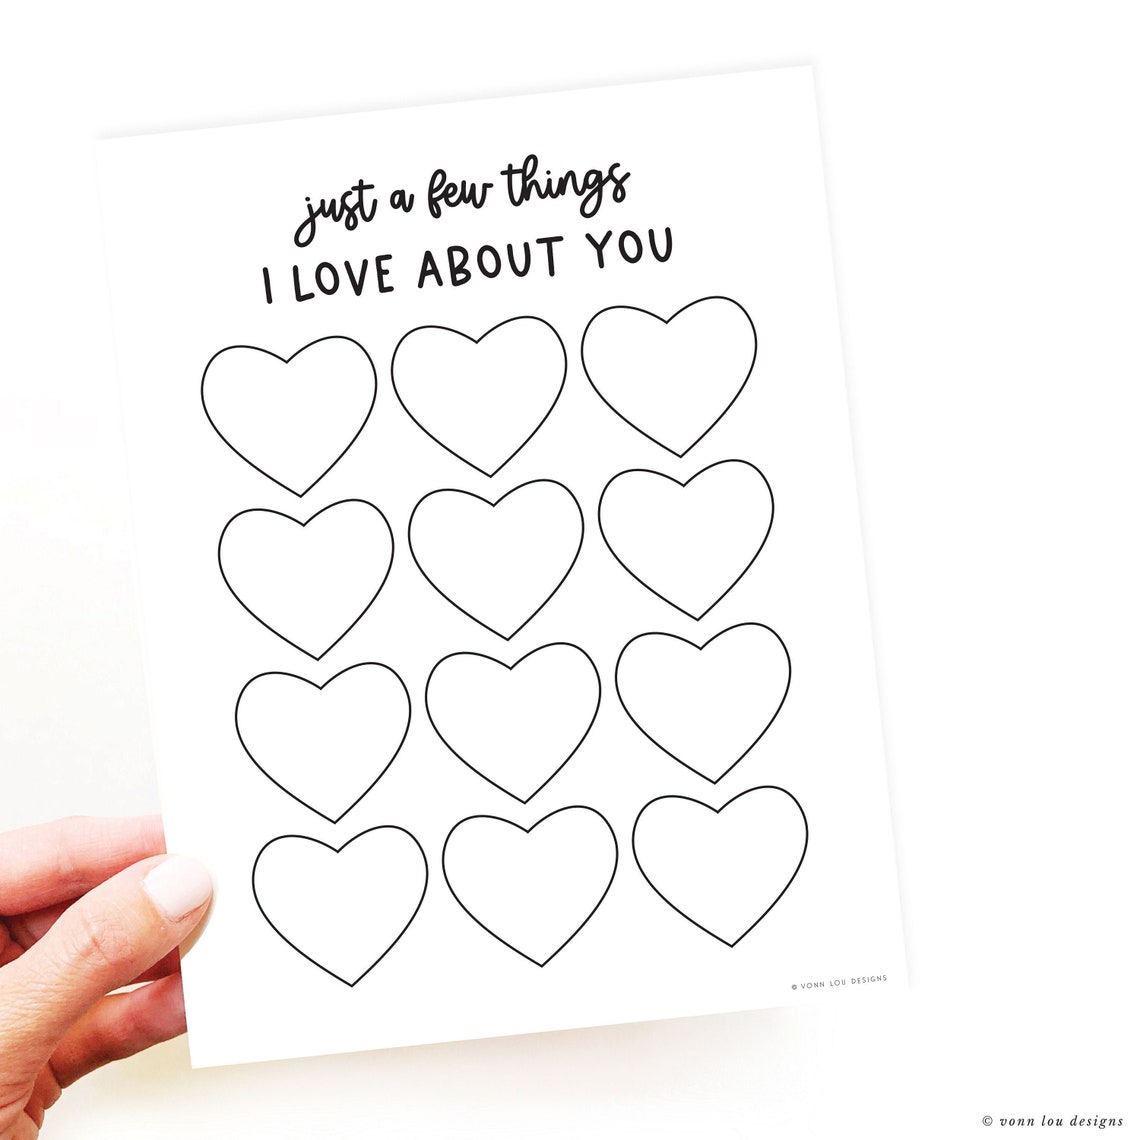 just a few things
I LOVE ABOUT YOU
© VONN LOU DESIGNS
© vonn lou designs